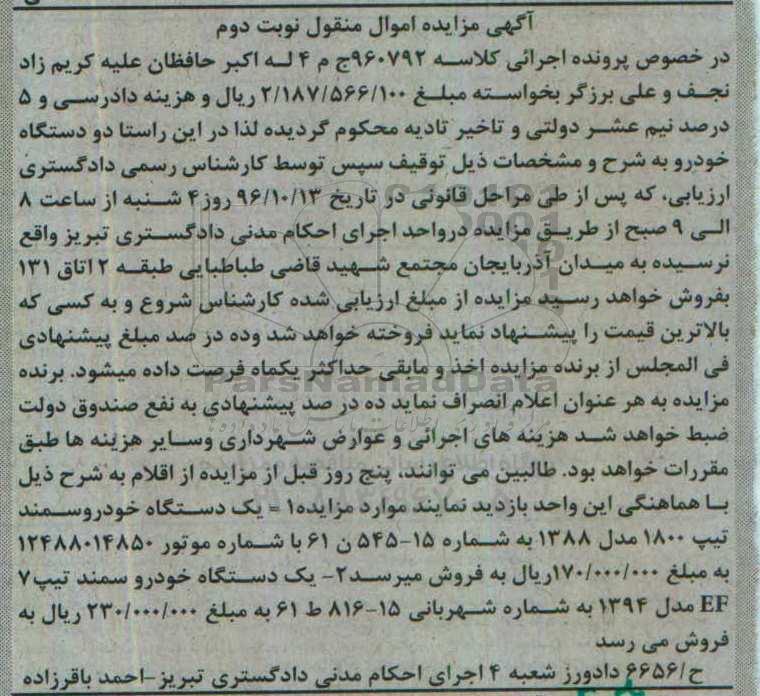 آگهی مزایده اموال منقول نوبت دوم
در خصوص پرونده اجرائی کلاسه ۹۶۰۷۹۲ج م ۴ له اکبر حافظان علیه کریم زاد
نجف و علی برزگر بخواسته مبلغ ۲/۱۸۷/۵۶۶/۱۰۰ ریال و هزینه دادرسی و ۵
درصد نیم عشر دولتی و تاخیر تادیه محکوم گردیده لذا در این راستا دو دستگاه
خودرو به شرح و مشخصات ذیل توقیف سپس توسط کارشناس رسمی دادگستری
ارزیابی، که پس از طی مراحل قانونی در تاریخ ۹۶/۱۰/۱۳ روز۴ شنبه از ساعت ۸
الی ۹ صبح از طریق مزایده درواحد اجرای احکام مدنی دادگستری تبریز واقع
نرسیده به میدان آذربایجان مجتمع شهید قاضی طباطبایی طبقه ۲ اتاق ۱۳۱
بفروش خواهد رسید مزایده از مبلغ ارزیابی شده کارشناس شروع و به کسی که
بالاترین قیمت را پیشنهاد نماید فروخته خواهد شد وده در صد مبلغ پیشنهادی
فی المجلس از برنده مزایده اخذ و مابقی حداکثر یکماه فرصت داده میشود. برنده
مزایده به هر عنوان اعلام انصراف نماید ده در صد پیشنهادی به نفع صندوق دولت
ضبط خواهد شد هزینه های اجرائی و عوارض شهرداری وسایر هزینه ها طبق
مقررات خواهد بود. طالبین می توانند، پنج روز قبل از مزایده از اقلام به شرح ذیل
با هماهنگی این واحد بازدید نمایند موارد مزایده۱ = یک دستگاه خودروسمند
تیپ ۱۸۰۰ مدل ۱۳۸۸ به شماره ۱۵-۵۴۵ ن ۶۱ با شماره موتور ۱۲۴۸۸۰۱۴۸۵۰
به مبلغ ۱۷۰/۰۰۰/۰۰۰ریال به فروش میرسد۲- یک دستگاه خودرو سمند تیپ۷
EF مدل ۱۳۹۴ به شماره شهربانی ۱۵-۸۱۶ ط ۶۱ به مبلغ ۲۳۰/۰۰۰/۰۰۰ ریال به
فروش می رسد
ح/۶۶۵۶ دادورز شعبه ۴ اجرای احکام مدنی دادگستری تبریز-احمد باقرزاده
ParsNamadData